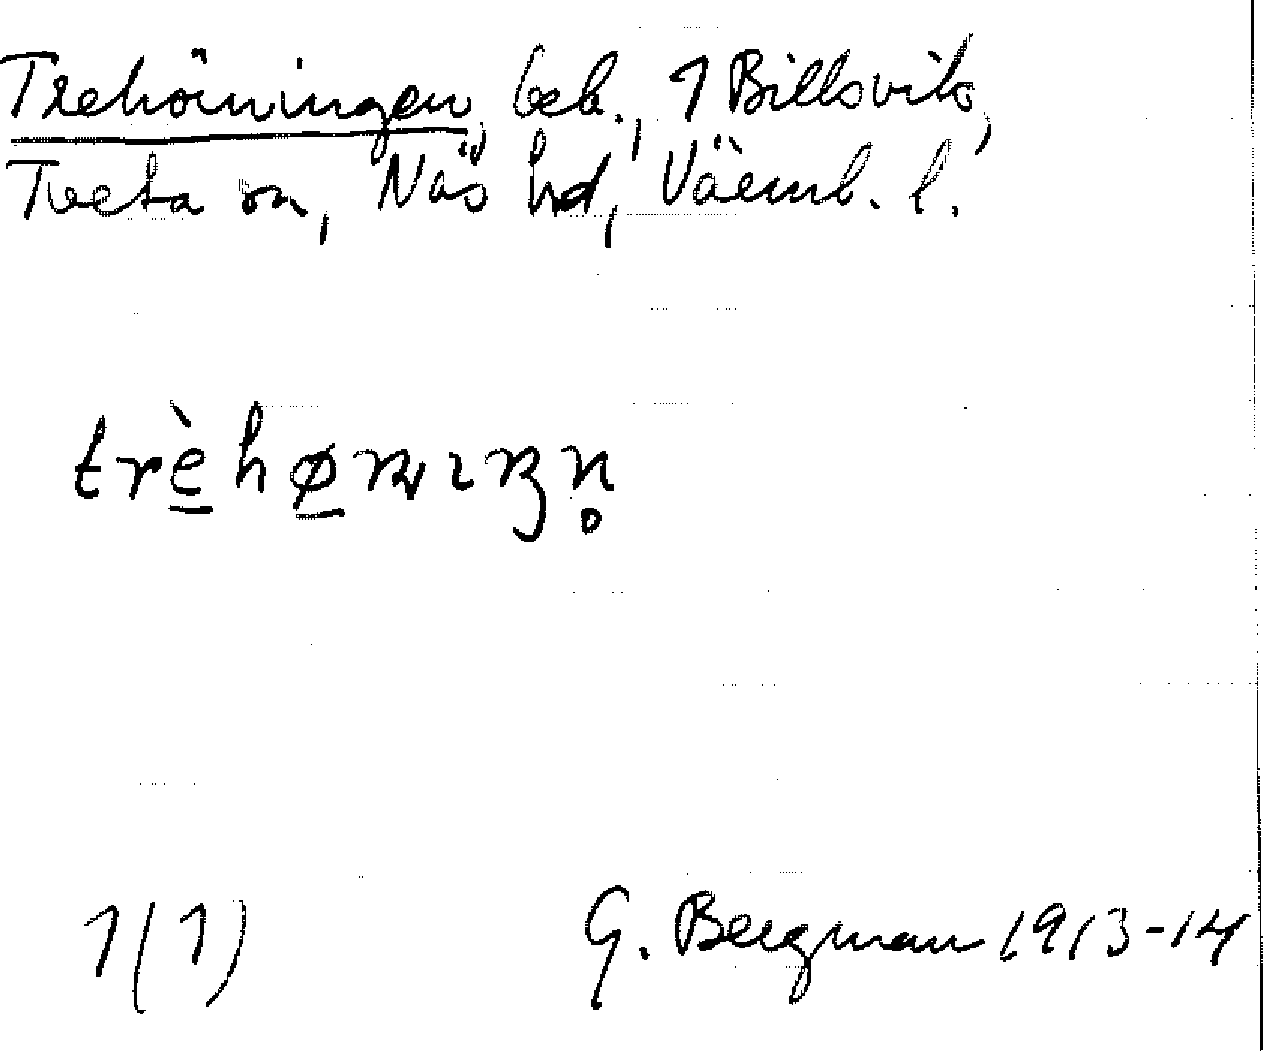 Trehörningen, beb., 1 Billsvik,
Tveta sn, Näs hd, Värml. l.
trè̱hø̱ɳɪŋn̥
1(1) G. Bergman 1913-14